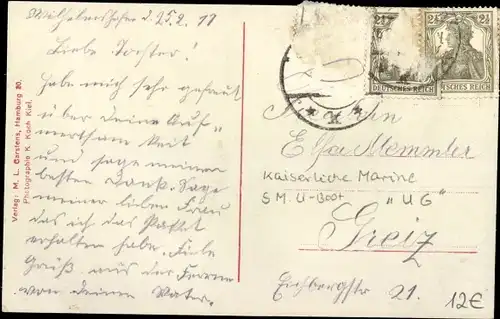 Wilhelmshafen d. 25.2.17
Liebe Tochter!
Habe mich sehr gefreut
über deine Auf-
merksamkeit
und sage meinen
besten Dank. Sage
meiner lieben Frau
das ich das Paktet
erhalten habe. Liebe
Grüße aus der Ferne
von deinem Vater.
Verlag: M. L. Carstens, Hamburg 30.
Photographie K. Koch Kiel.
2½
DEUTSCHES REICH
2½ 2½
DEUTSCHES REICH
Elsa Memmler
Kaiserliche Marine
S.M. U-Boot "UG"
Greiz
Eichbergstr 21.
12€